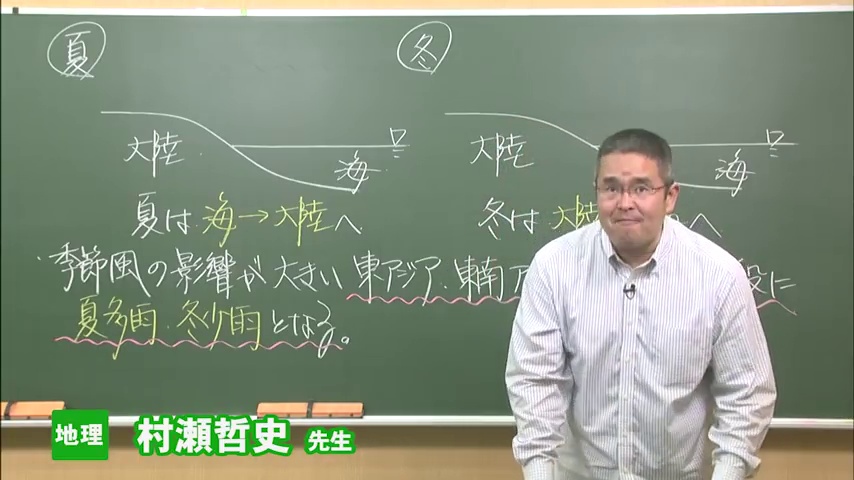 夏
冬
大陸
海
大陸
海
夏は 海→大陸へ
冬は 大陸 へ
季節風の影響が大きい東アジア、東南ア 般に
夏多雨、冬少雨となる。
地理 村瀬哲史 先生